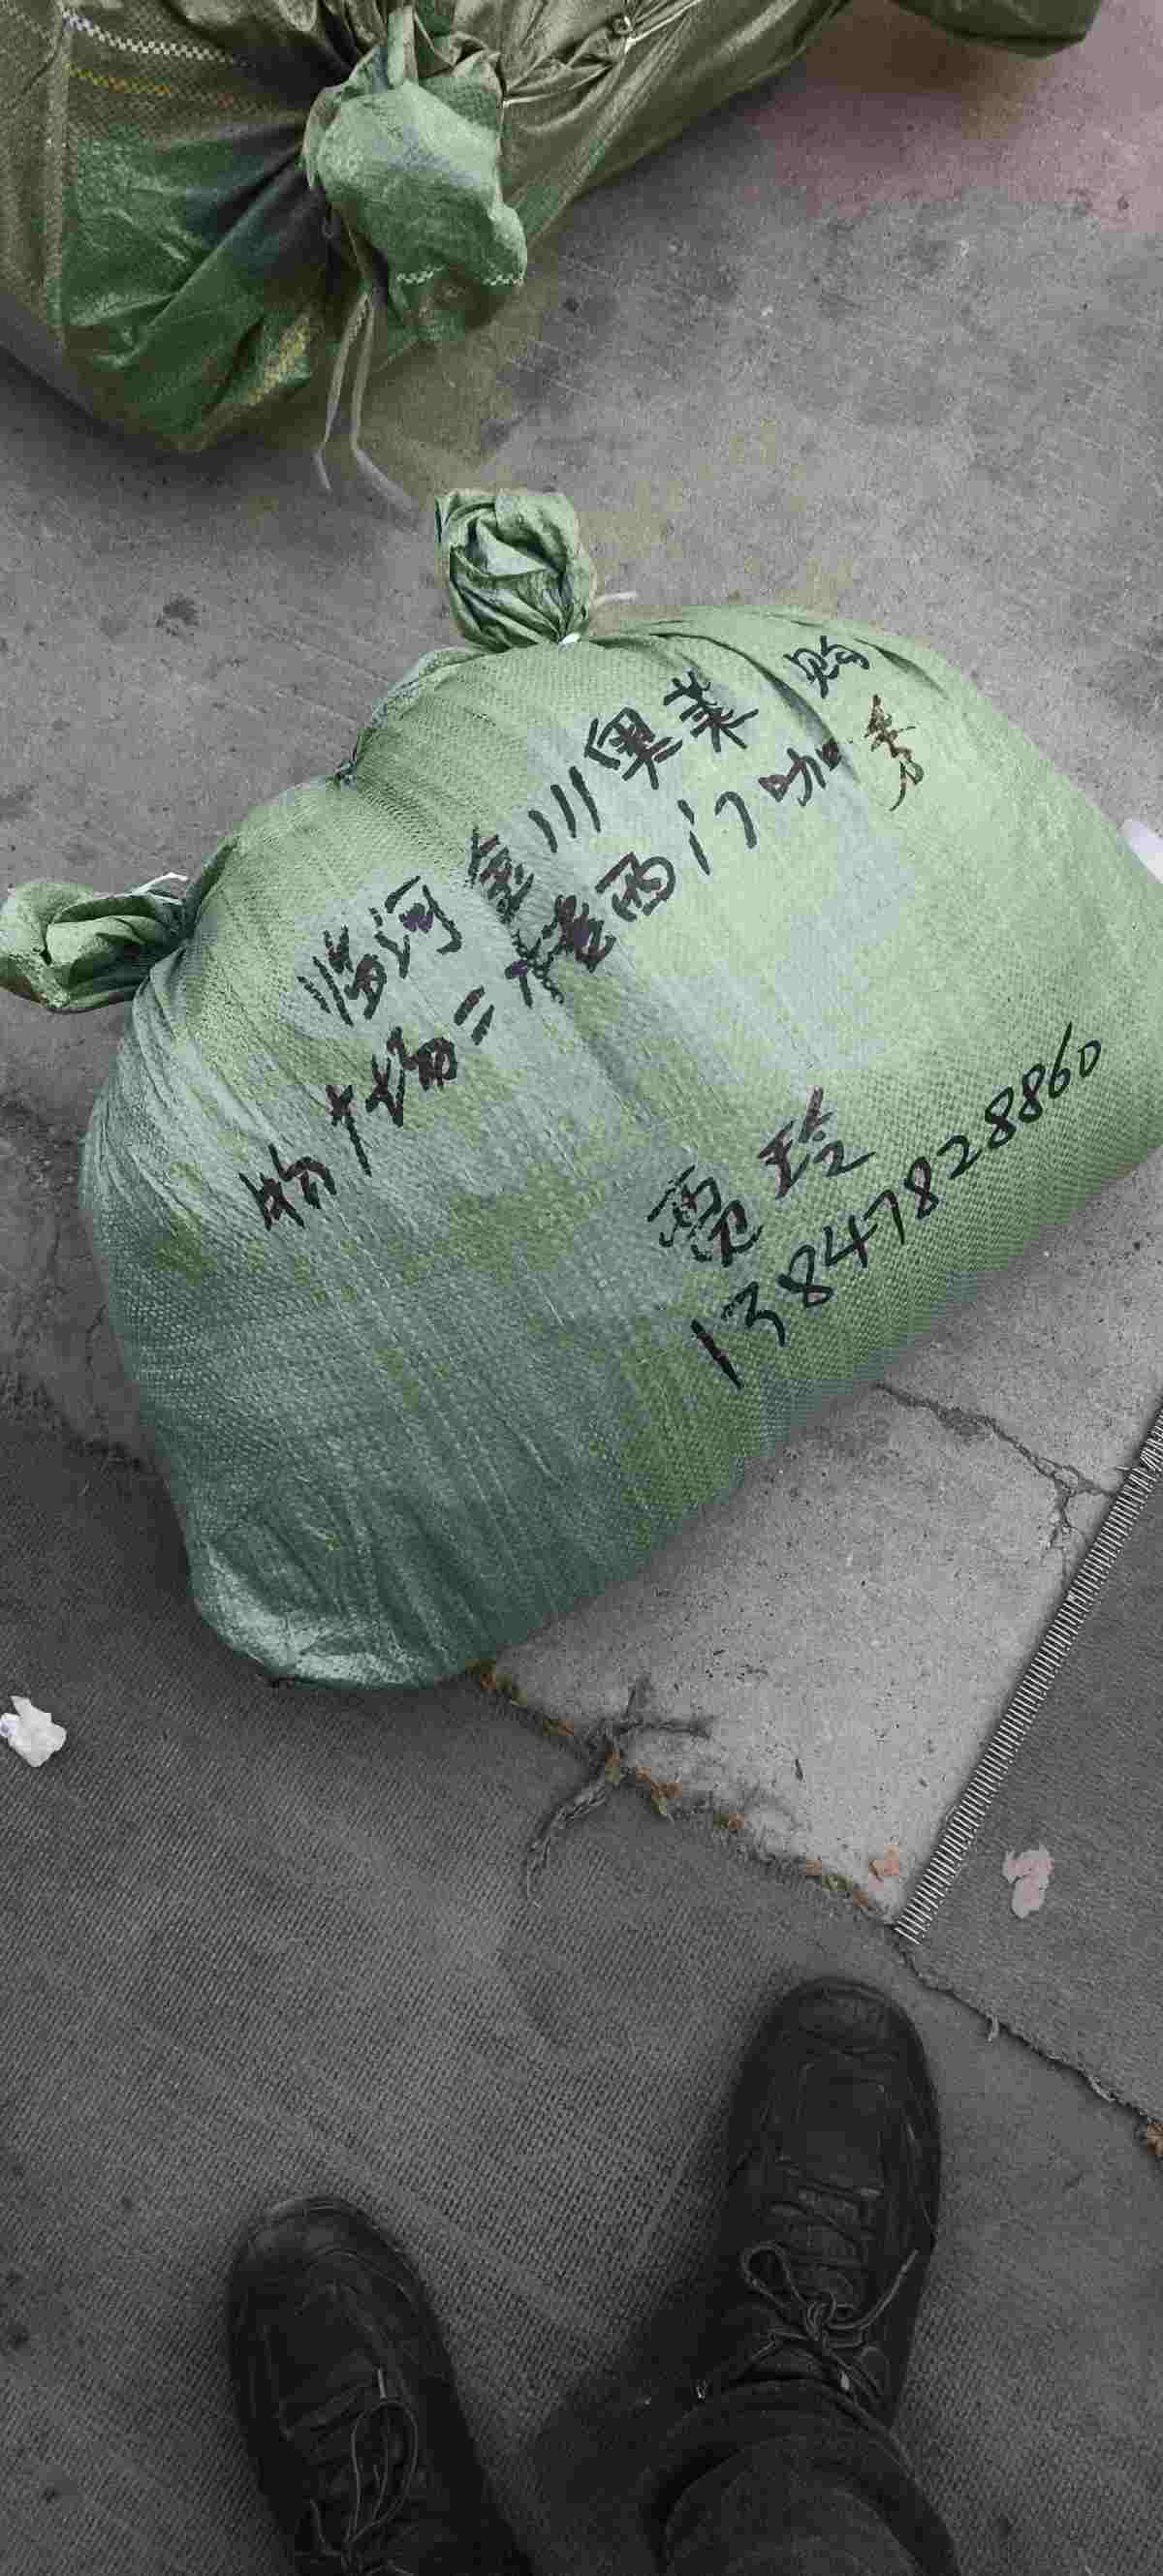 临河金川奥莱购
物广场二楼西门咖秀
贾玲
13847828860